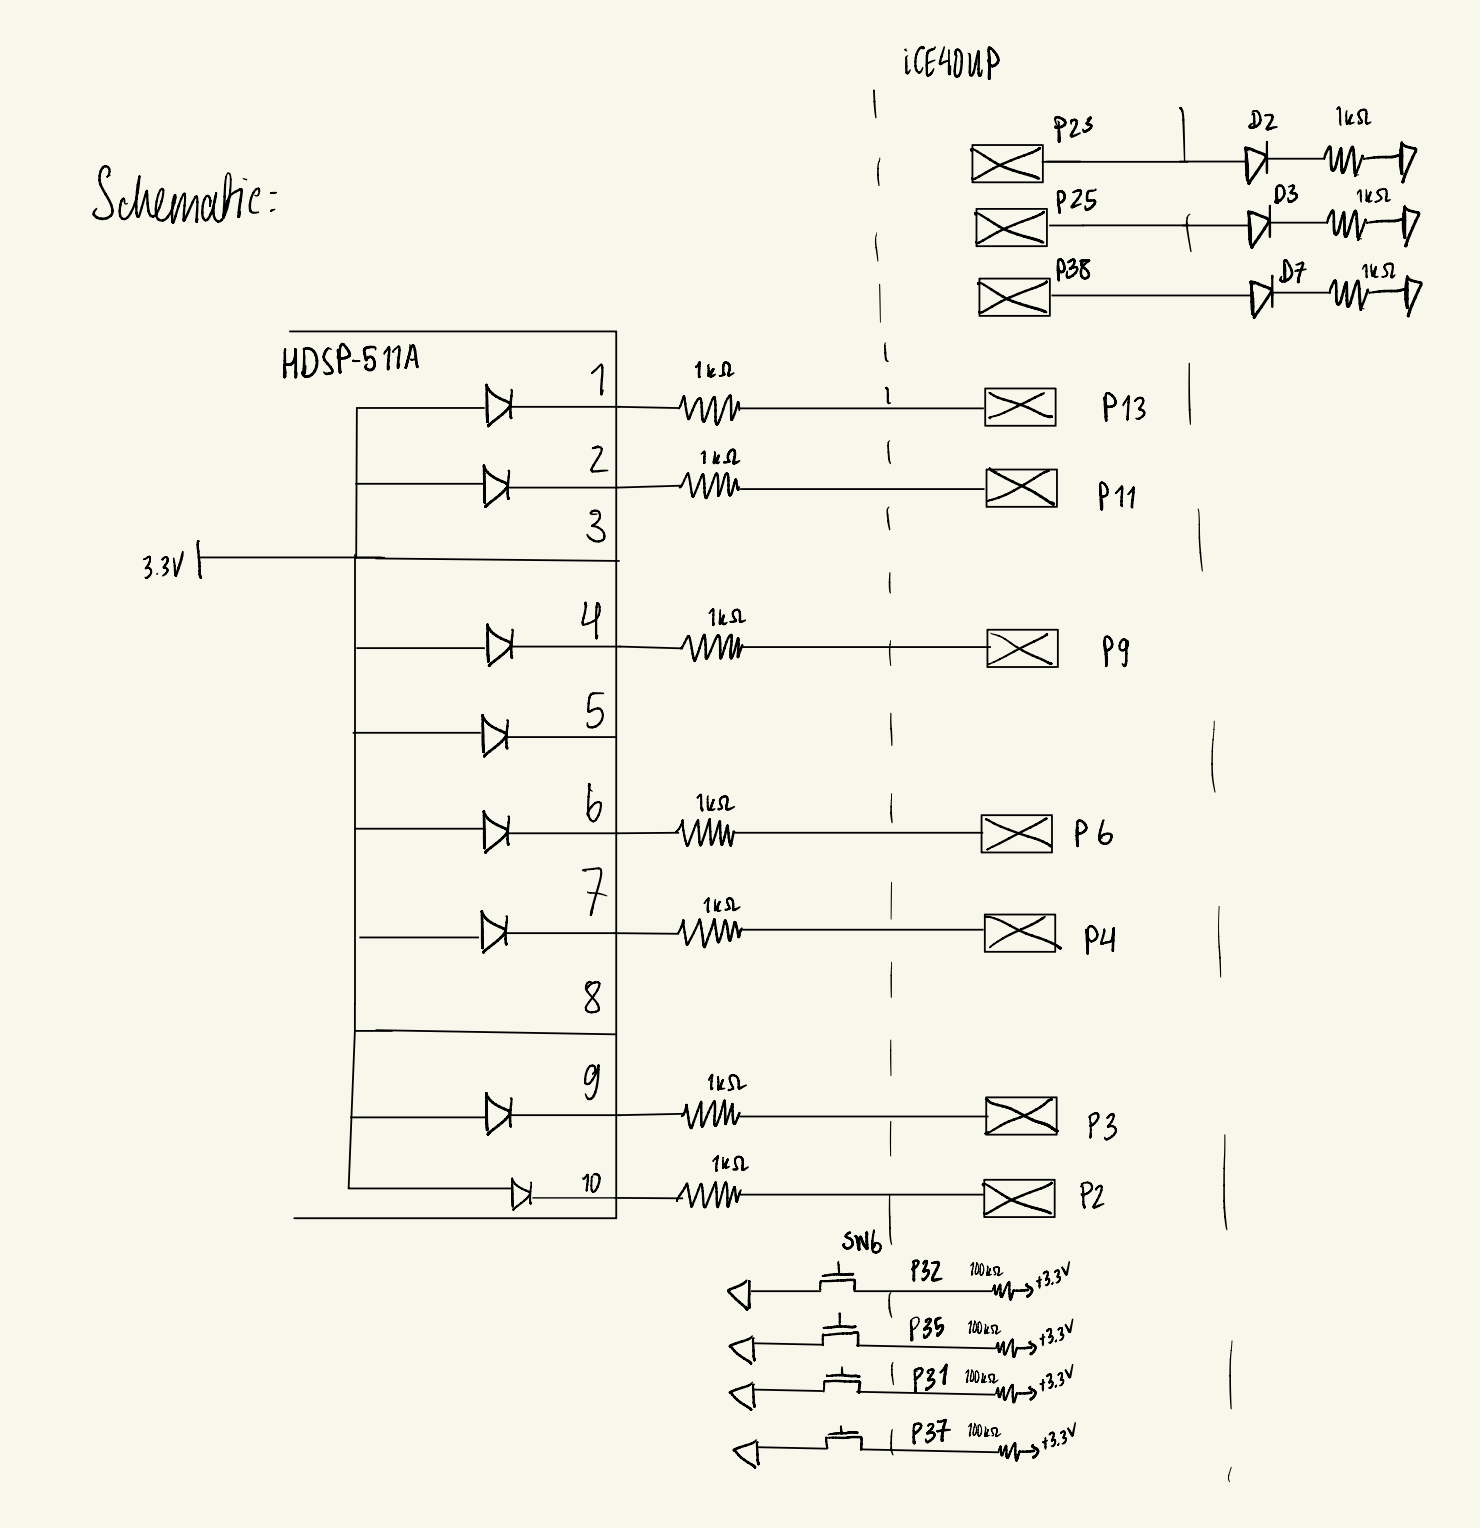 iCE40UP
P23 D2 1kΩ
P25 D3 1kΩ
P38 D7 1kΩ
Schematic:
HDSP-511A
1 1kΩ P13
2 1kΩ P11
3
3.3V
4 1kΩ P9
5
6 1kΩ P6
7 1kΩ P4
8
9 1kΩ P3
10 1kΩ P2
SW6
P32 100kΩ +3.3V
P35 100kΩ +3.3V
P31 100kΩ +3.3V
P37 100kΩ +3.3V